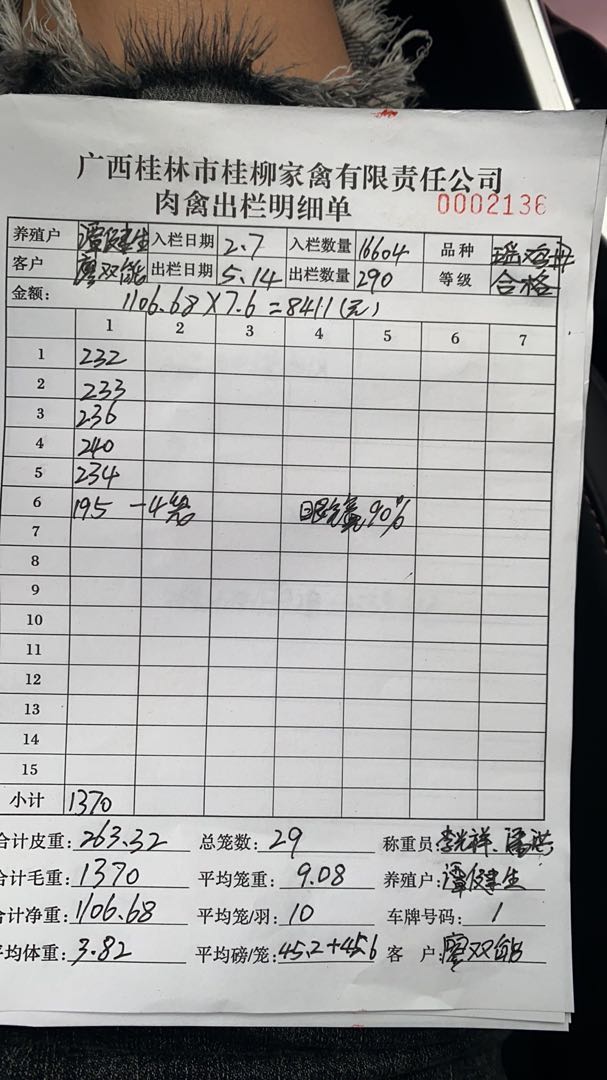 广西桂林市桂柳家禽有限责任公司
肉禽出栏明细单 0002136
养殖户 谭健生 入栏日期 2.7 入栏数量 16604 品种 瑶鸡
客户 廖双能 出栏日期 5.14 出栏数量 290 等级 合格
金额: 1106.68×7.6=8411(元)
1 2 3 4 5 6 7
1 232
2 233
3 236
4 240
5 234
6 195 -4笼 90%
7
8
9
10
11
12
13
14
15
小计 1370
合计皮重: 263.32 总笼数: 29 称重员 李光祥、
合计毛重: 1370 平均笼重: 9.08 养殖户: 谭健生
合计净重: 1106.68 平均笼/羽: 10 车牌号码: 1
平均体重: 3.82 平均磅/笼: 45.2+45.6 客 户: 廖双能